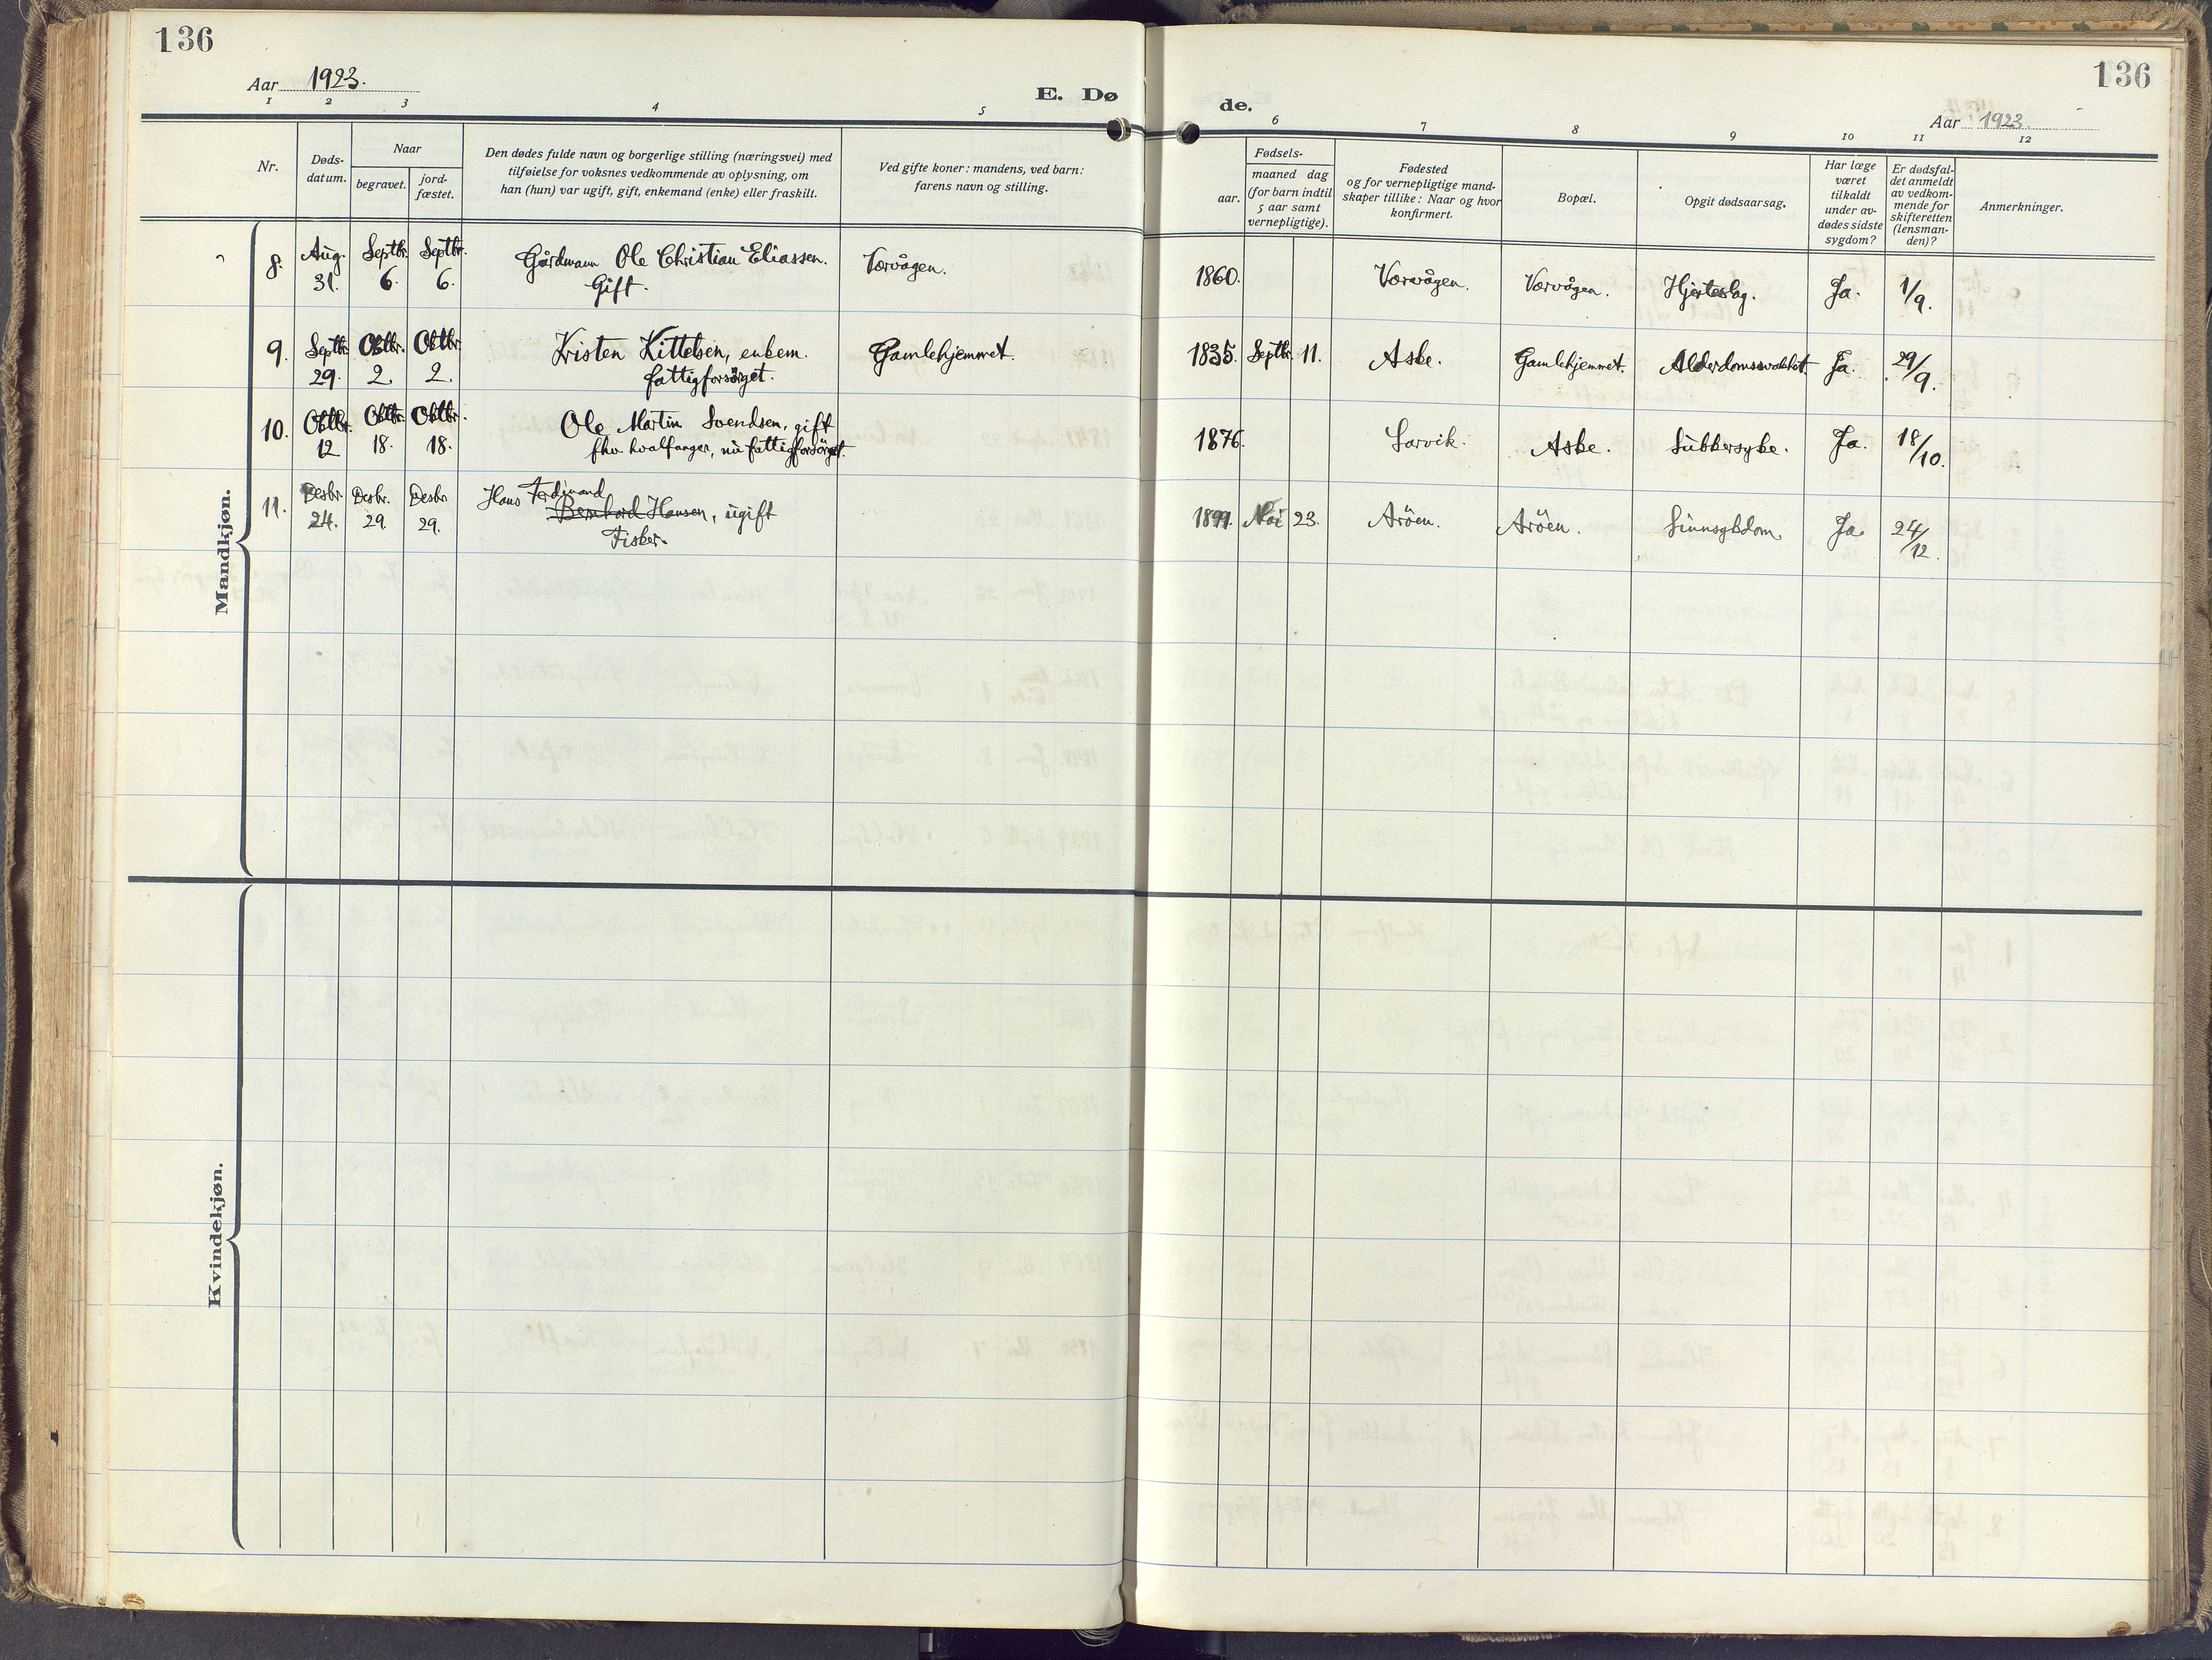 136
Aar 1923.
E. Dø
1 2 3 4 5
Nr.
Døds-
datum.
Naar
begravet.
jord-
fæstet.
Den dødes fulde navn og borgerlige stilling (næringsvei) med
tilføielse for voksnes vedkommende av oplysning, om
han (hun) var ugift, gift, enkemand (enke) eller fraskilt.
Ved gifte koner: mandens, ved barn:
farens navn og stilling.
Mandkjøn.
8. Aug. Septbr. Septbr. Gårdmann Ole Christian Eliassen. Værvågen.
31. 6. 6. Gift.
9. Septbr. Oktbr. Oktbr. Kristen Kittelsen, enkem. Gamlehjemmet.
29. 2. 2. fattigforsörget.
10. Oktbr. Oktbr. Oktbr. Ole Martin Svendsen, gift
12 18. 18. fhv. hvalfanger, nu fattigforsörget.
11. Desbr. Desbr. Desbr. Hans Ferdinand
24. 29. 29. Bernhard Hansen, ugift
Fisker.
Kvindekjøn.
136
de.
Aar 1923.
6 7 8 9 10 11 12
Fødsels-
aar.
maaned dag
(for barn indtil
5 aar samt
vernepligtige).
Fødested
og for vernepligtige mand-
skaper tillike: Naar og hvor
konfirmert.
Bopæl.
Opgit dødsaarsag.
Har læge
været
tilkaldt
under av-
dødes sidste
sygdom?
Er dødsfal-
det anmeldt
av vedkom-
mende for
skifteretten
(lensman-
den)?
Anmerkninger.
1860. Værvågen. Værvågen. Hjerteslag. Ja. 1/9.
1835. Septbr. 11. Aske. Gamlehjemmet. Alderdomssvakhet Ja. 29/9.
1876. Larvik. Aske. Sukkersyke. Ja. 18/10.
1899. Mai 23. Aröen. Aröen. Sinnsykdom. Ja. 24/12.